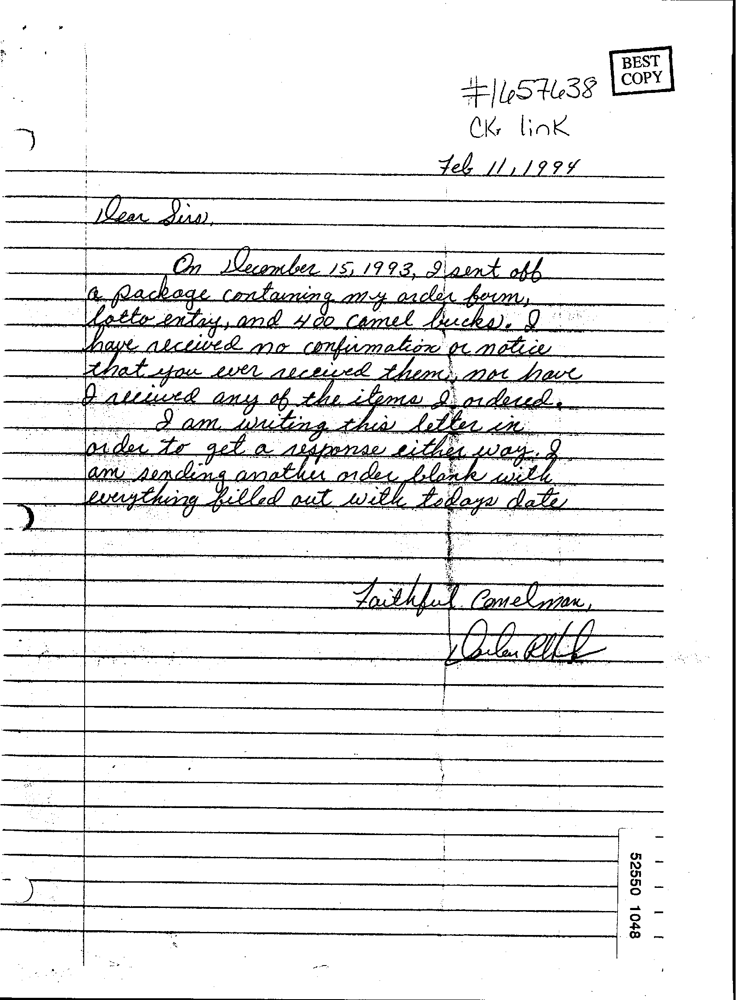 BEST
COPY
#1657638
CK. link
Feb 11, 1994
Dear Sirs,
On December 15, 1993, I sent off
a package containing my order form,
lotto entry, and 400 camel bucks. I
have received no confirmation or notice
that you ever received them, nor have
I received any of the items I ordered.
I am writing this letter in
order to get a response either way. I
am sending another order blank with
everything filled out with todays date
Faithful Camelman,
52550 1048